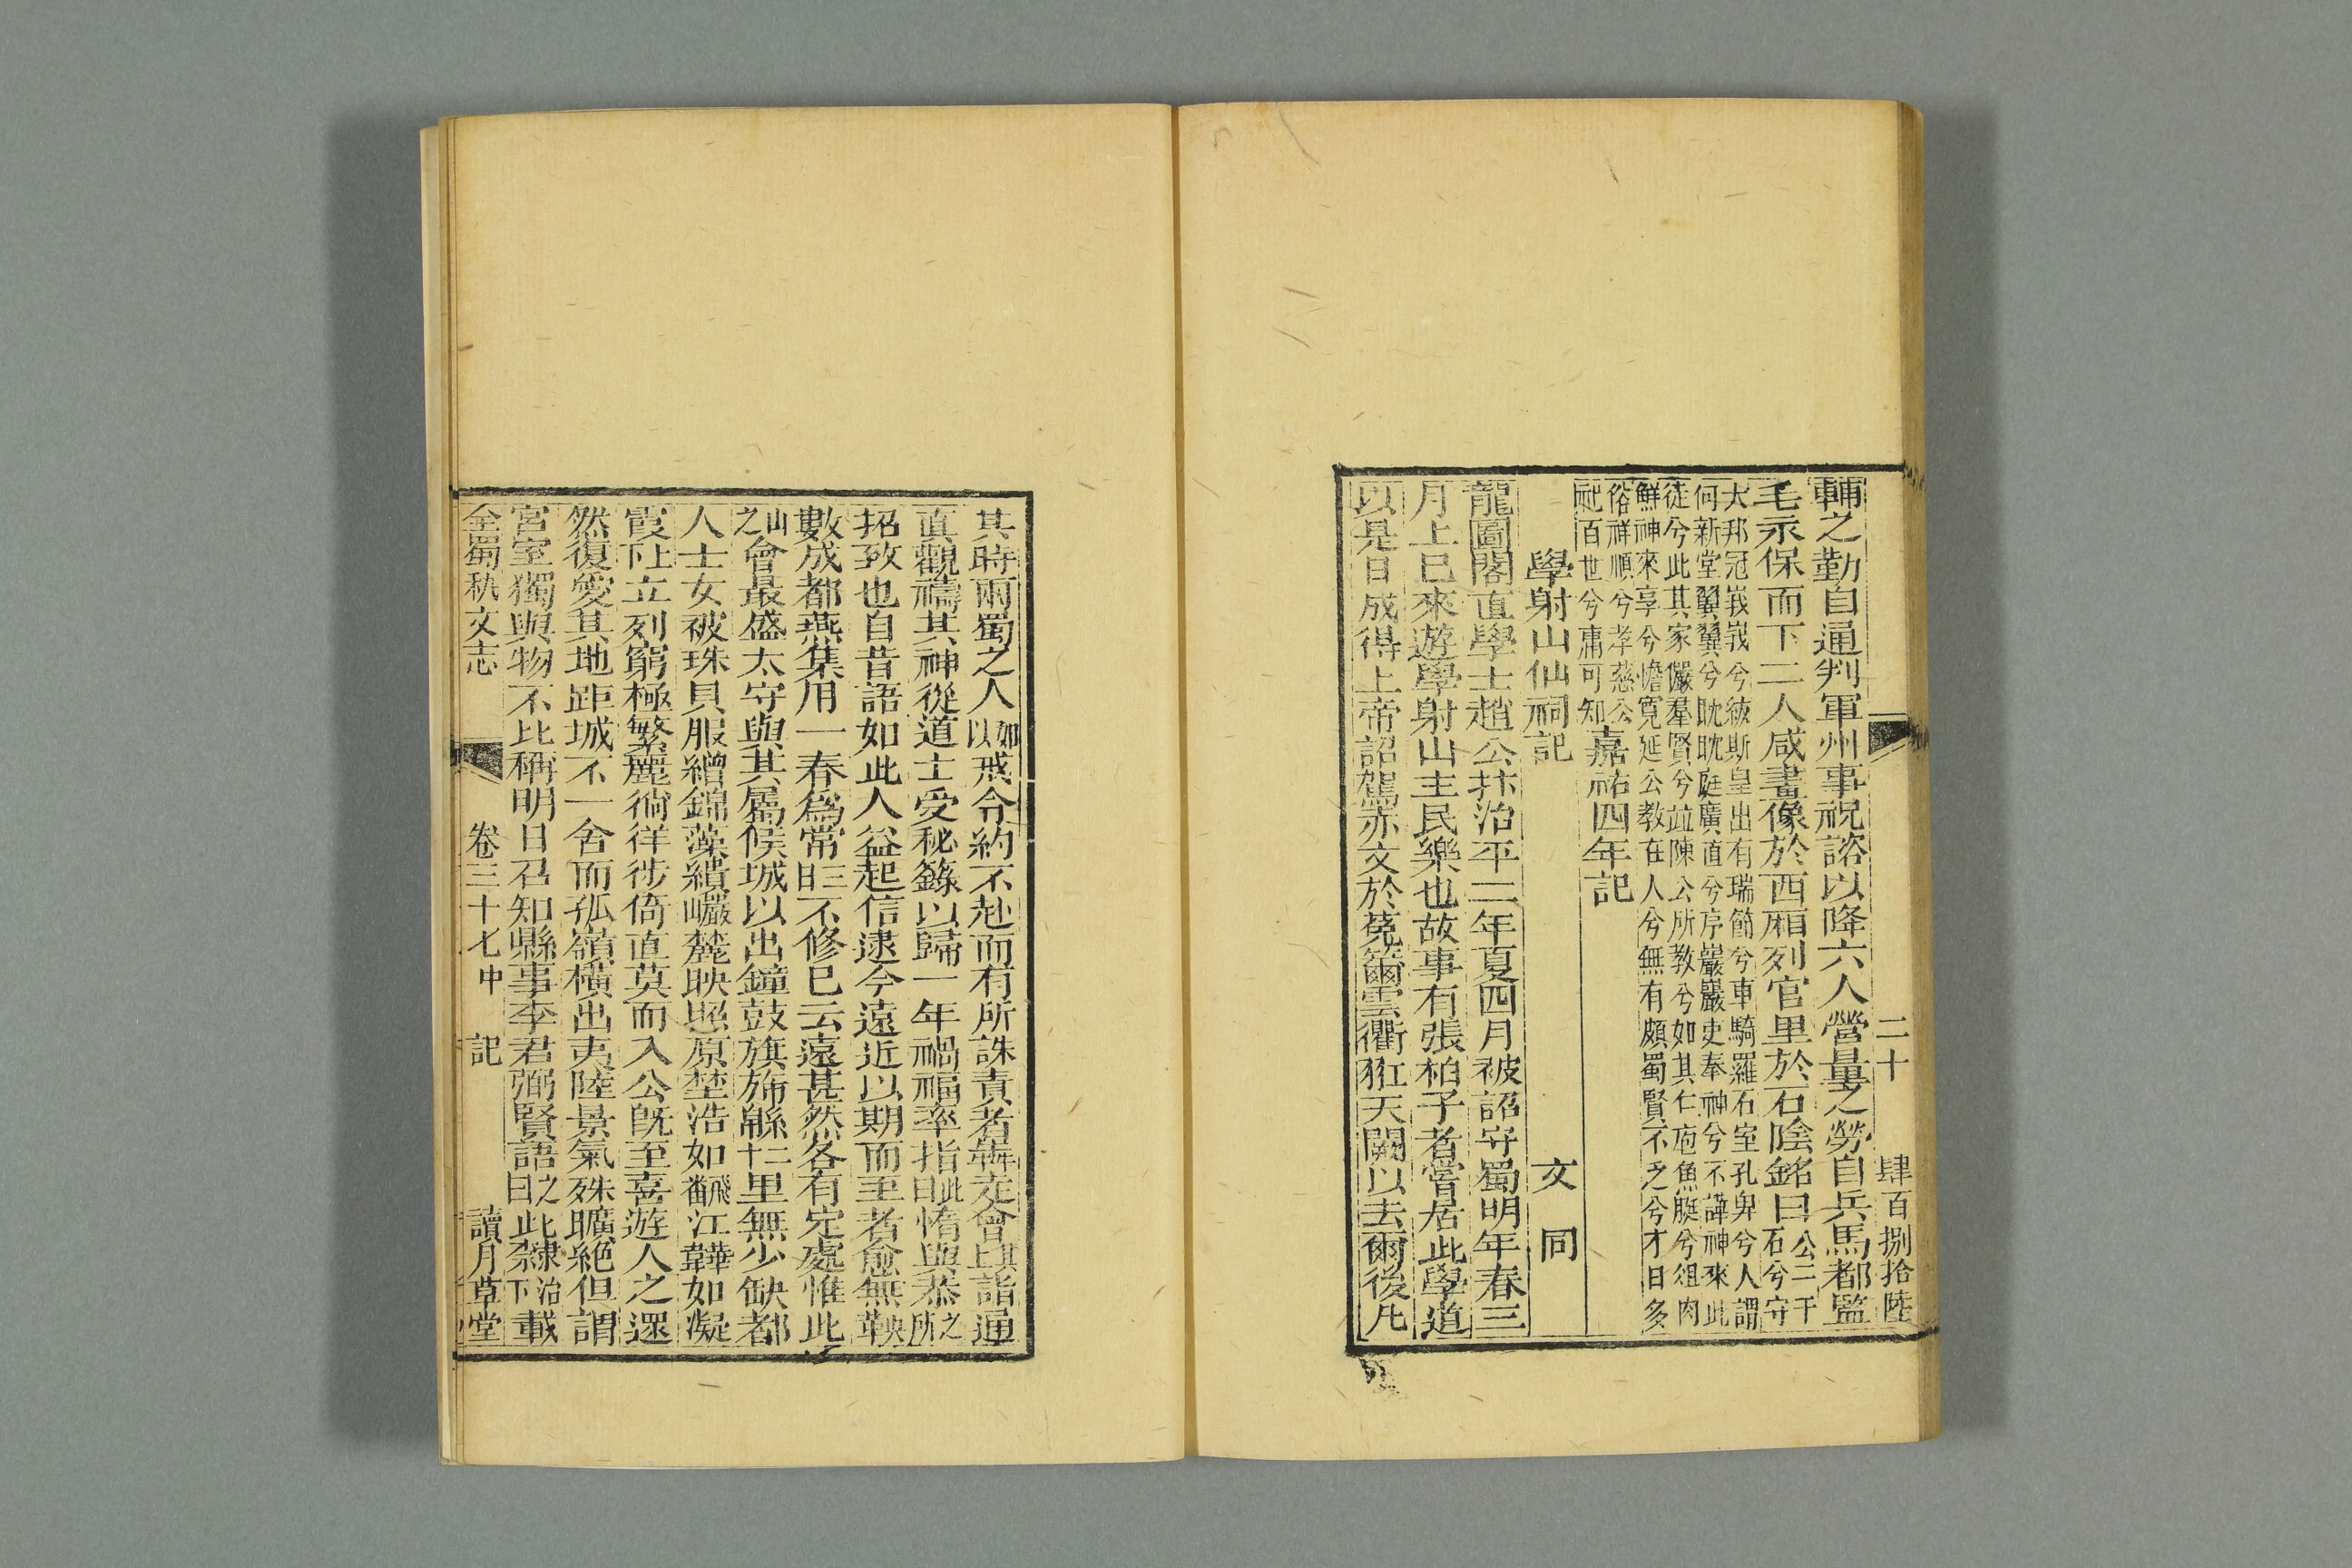 二十 肆百捌拾陸
輔之勤自通判軍州事祝諮以降六人營量之勞自兵馬都監
毛永保而下二人咸畫像於西廂列官里於石陰銘曰公二千石兮守
大邦冠峩峩兮紱斯皇出有瑞節兮車騎羅石室孔卑兮人謂
何新堂翼翼兮耽耽庭廣直兮序巖巖吏奉神兮不譁神來此
徒兮此其家儼羣賢兮竝陳公所教兮如其仁庖魚艇兮俎肉
鮮神來享兮憺寛延公教在人兮無有頗蜀賢不乏兮才日多
俗祥順兮孝慈公
祀百世兮庸可知嘉祐四年記
學射山仙祠記 文同
龍圖閣直學士趙公抃治平二年夏四月被詔守蜀明年春三
月上巳來遊學射山主民樂也故事有張柏子者嘗居此學道
以是日成得上帝詔駕赤文於菟籋雲衢翐天關以去爾後凡
其時兩蜀之人以如戒令約不赴而有所誅責者犇走會其上詣通
眞觀禱其神從道士受秘籙以歸一年禍福率指此曰惰與恭之所
招致也自昔語如此人益起信逮今遠近以期而至者愈無鞅
數成都燕集用一春爲常三旦不修巳云遠甚然各有定處惟此
山之會最盛太守與其屬候城以出鐘鼓旗旆緜二十里無少缺都
人士女被珠貝服繒錦藻繢巖麓映照原埜浩如翻江韡如凝
霞上下立列窮極繁麗徜徉徙倚直莫而入公旣至喜遊人之還
然復愛其地距城不一舍而孤嶺橫出夷陸景氣殊曠絶但謂
宮室獨與物不比稱明日召知縣事李君弼賢語之曰此隸治下祭載
全蜀秇文志 卷三十七中 記 讀月草堂